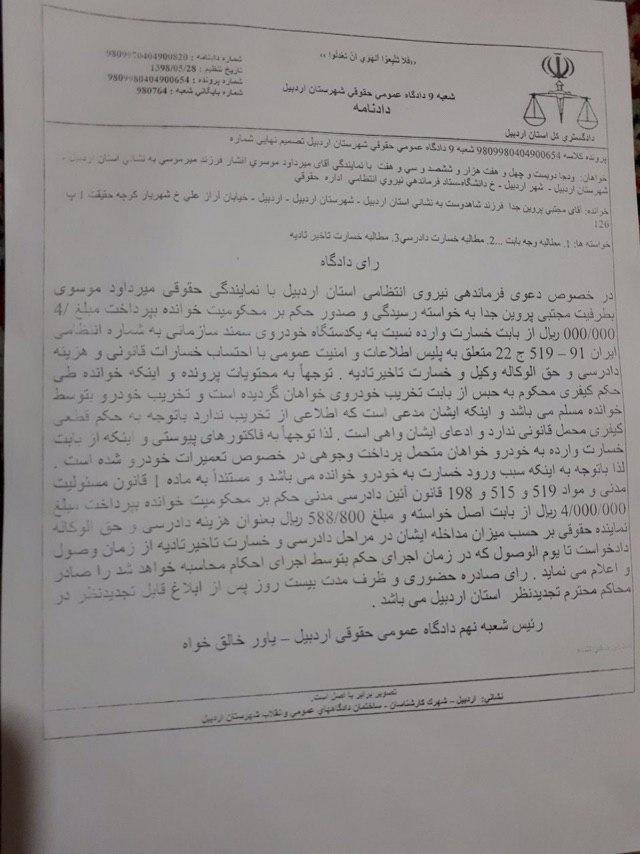 ,,فلا تتبعوا الهوي ان تعدلوا ,,
شعبه 9 دادگاه عمومي حقوقي شهرستان اردبيل
دادنامه
شماره دادنامه : 9809970404900820
تاريخ تنظيم : 1398/05/28
شماره پرونده : 9809980404900654
شماره بايگاني شعبه : 980764
دادگستري کل استان اردبيل
پرونده کلاسه 9809980404900654 شعبه 9 دادگاه عمومي حقوقي شهرستان اردبيل تصميم نهايي شماره
خواهان: ودجا دويست و چهل و هفت هزار و ششصد و سي و هفت با نمايندگي آقاي ميرداود موسوي افشار فرزند ميرموسي به نشاني استان اردبيل -
شهرستان اردبيل - شهر اردبيل - خ دانشگاه-ستاد فرماندهي نيروي انتظامي اداره حقوقي
خوانده: آقاي مجتبي پروين جدا فرزند شاهدوست به نشاني استان اردبيل - شهرستان اردبيل - اردبيل - خيابان آراز علي خ شهريار کوچه حقيقت 1 پ
126
خواسته ها: 1. مطالبه وجه بابت ...2. مطالبه خسارت دادرسي3. مطالبه خسارت تاخير تاديه
رای دادگاه
در خصوص دعوی فرماندهی نیروی انتظامی استان اردبیل با نمایندگی حقوقی میرداود موسوی
بطرفیت مجتبی پروین جدا به خواسته رسیدگی و صدور حکم بر محکومیت خوانده بپرداخت مبلغ /4
000/000 ریال از بابت خسارت وارده نسبت به یکدستگاه خودروی سمند سازمانی به شماره انتظامی
ایران 91 – 519 ج 22 متعلق به پلیس اطلاعات و امنیت عمومی با احتساب خسارات قانونی و هزینه
دادرسی و حق الوکاله وکیل و خسارت تاخیرتادیه . توجهاً به محتویات پرونده و اینکه خوانده طی
حکم کیفری محکوم به حبس از بابت تخریب خودروی خواهان گردیده است و تخریب خودرو بتوسط
خوانده مسلم می باشد و اینکه ایشان مدعی است که اطلاعی از تخریب ندارد باتوجه به حکم قطعی
کیفری محمل قانونی ندارد و ادعای ایشان واهی است . لذا توجهاً به فاکتورهای پیوستی و اینکه از بابت
خسارت وارده به خودرو خواهان متحمل پرداخت وجوهی در خصوص تعمیرات خودرو شده است .
لذا باتوجه به اینکه سبب ورود خسارت به خودرو خوانده می باشد و مستنداً به ماده 1 قانون مسئولیت
مدنی و مواد 519 و 515 و 198 قانون آئین دادرسی مدنی حکم بر محکومیت خوانده بپرداخت مبلغ
4/000/000 ریال از بابت اصل خواسته و مبلغ 588/800 ریال بعنوان هزینه دادرسی و حق الوکاله
نماینده حقوقی بر حسب میزان مداخله ایشان در مراحل دادرسی و خسارت تاخیرتادیه از زمان وصول
دادخواست تا یوم الوصول که در زمان اجرای حکم بتوسط اجرای احکام محاسبه خواهد شد را صادر
و اعلام می نماید . رای صادره حضوری و ظرف مدت بیست روز پس از ابلاغ قابل تجدیدنظر در
محاکم محترم تجدیدنظر استان اردبیل می باشد .
رئیس شعبه نهم دادگاه عمومی حقوقی اردبیل – یاور خالق خواه
تصوير برابر با اصل است.
نشاني: اردبيل - شهرک کارشناسان - ساختمان دادگاههاي عمومي وانقلاب شهرستان اردبيل